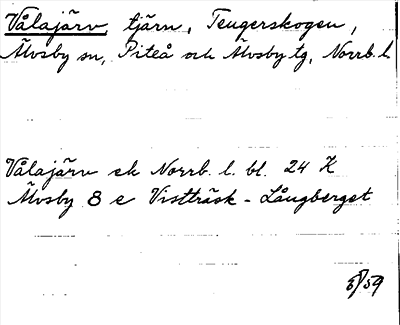 Vålajärv, tjärn, Teugerskogen,
Älvsby sn, Piteå och Älvsby tg, Norrb. l.
Vålajärv ek Norrb. l. bl. 24 K
Älvsby 8 e Vistträsk - Långberget
/59